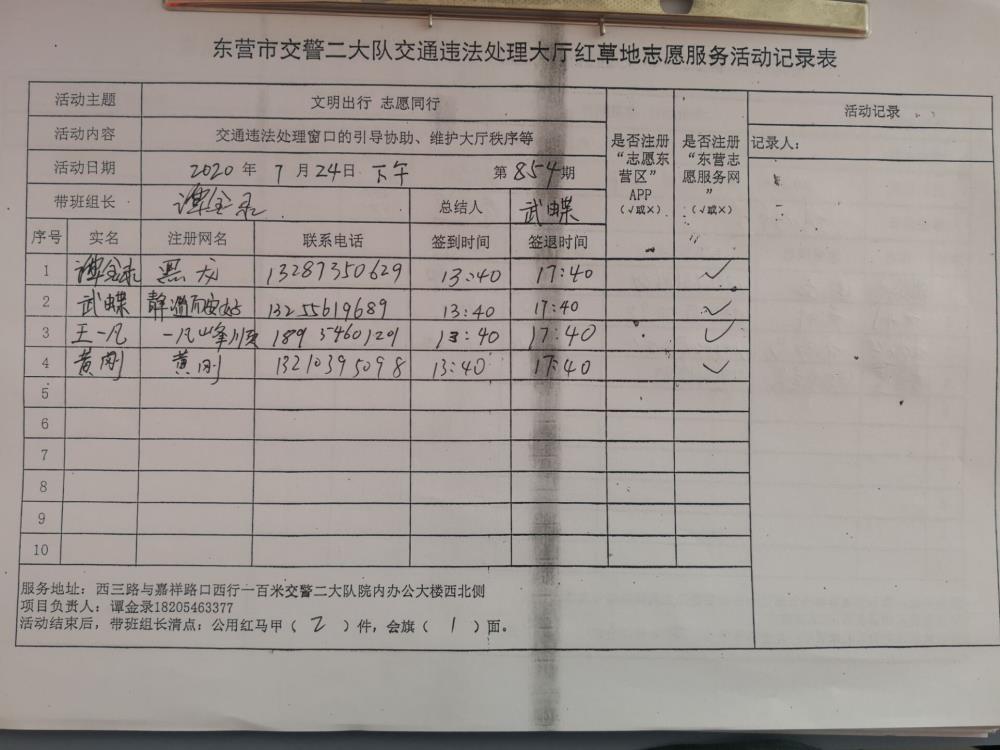 东营市交警二大队交通违法处理大厅红草地志愿服务活动记录表
活动主题 文明出行 志愿同行 是否注册“志愿东营区”APP(√或×) 是否注册“东营志愿服务网”(√或×) 活动记录
活动内容 交通违法处理窗口的引导协助、维护大厅秩序等 记录人：
活动日期 2020 年 7 月 24日 下午 第 854 期
带班组长 谭金录 总结人 武蝶
序号 实名 注册网名 联系电话 签到时间 签退时间
1 谭金录 黑龙 13287350629 13:40 17:40 √
2 武蝶 静 安好 13255619689 13:40 17:40 √
3 王一凡 一凡峰顺 189 54601201 13:40 17:40 √
4 黄刚 黄刚 13210395098 13:40 17:40 √
5
6
7
8
9
10
服务地址：西三路与嘉祥路口西行一百米交警二大队院内办公大楼西北侧
项目负责人：谭金录18205463377
活动结束后，带班组长清点：公用红马甲（ 2 ）件，会旗（ 1 ）面。